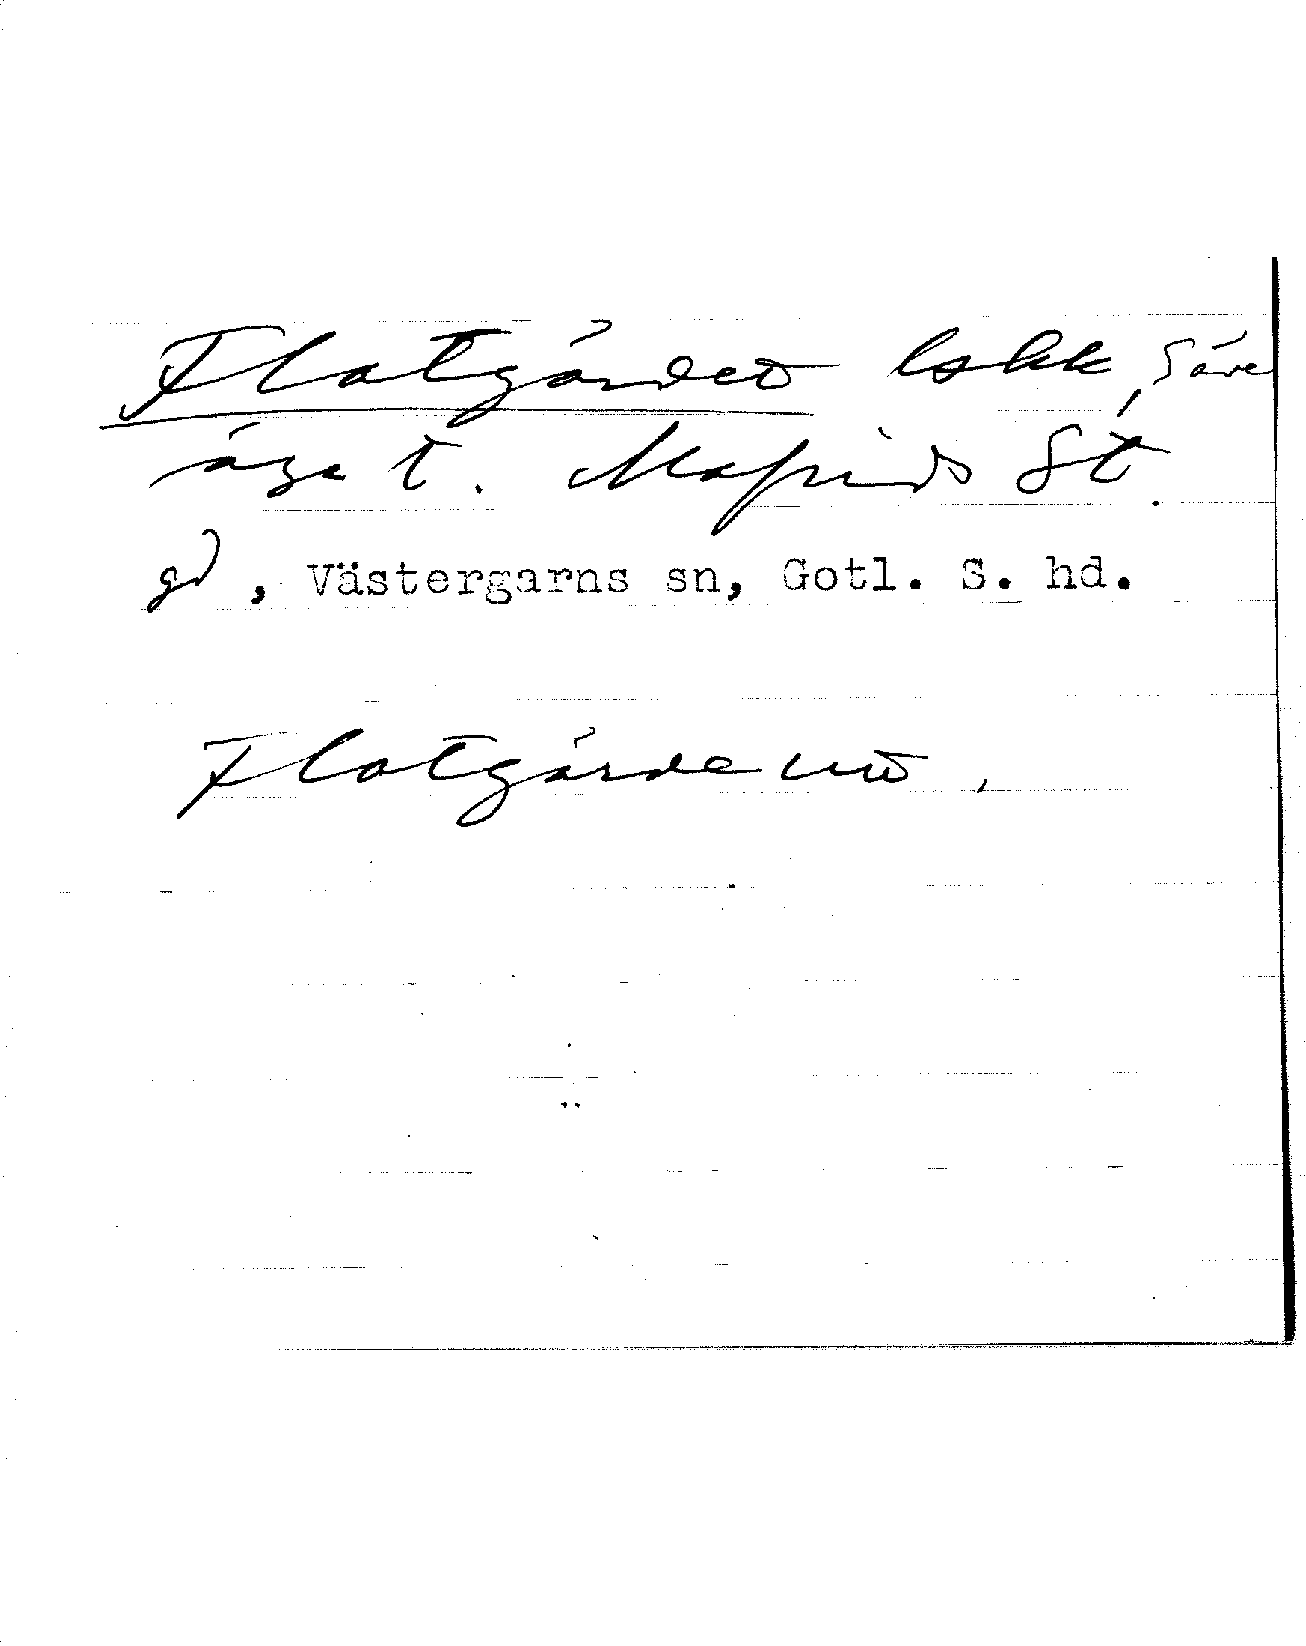 Flatgärdet lokk, Säve
äga t. Mafrids St.
gd, Västergarns sn, Gotl. S. hd.
Flatgärde und,